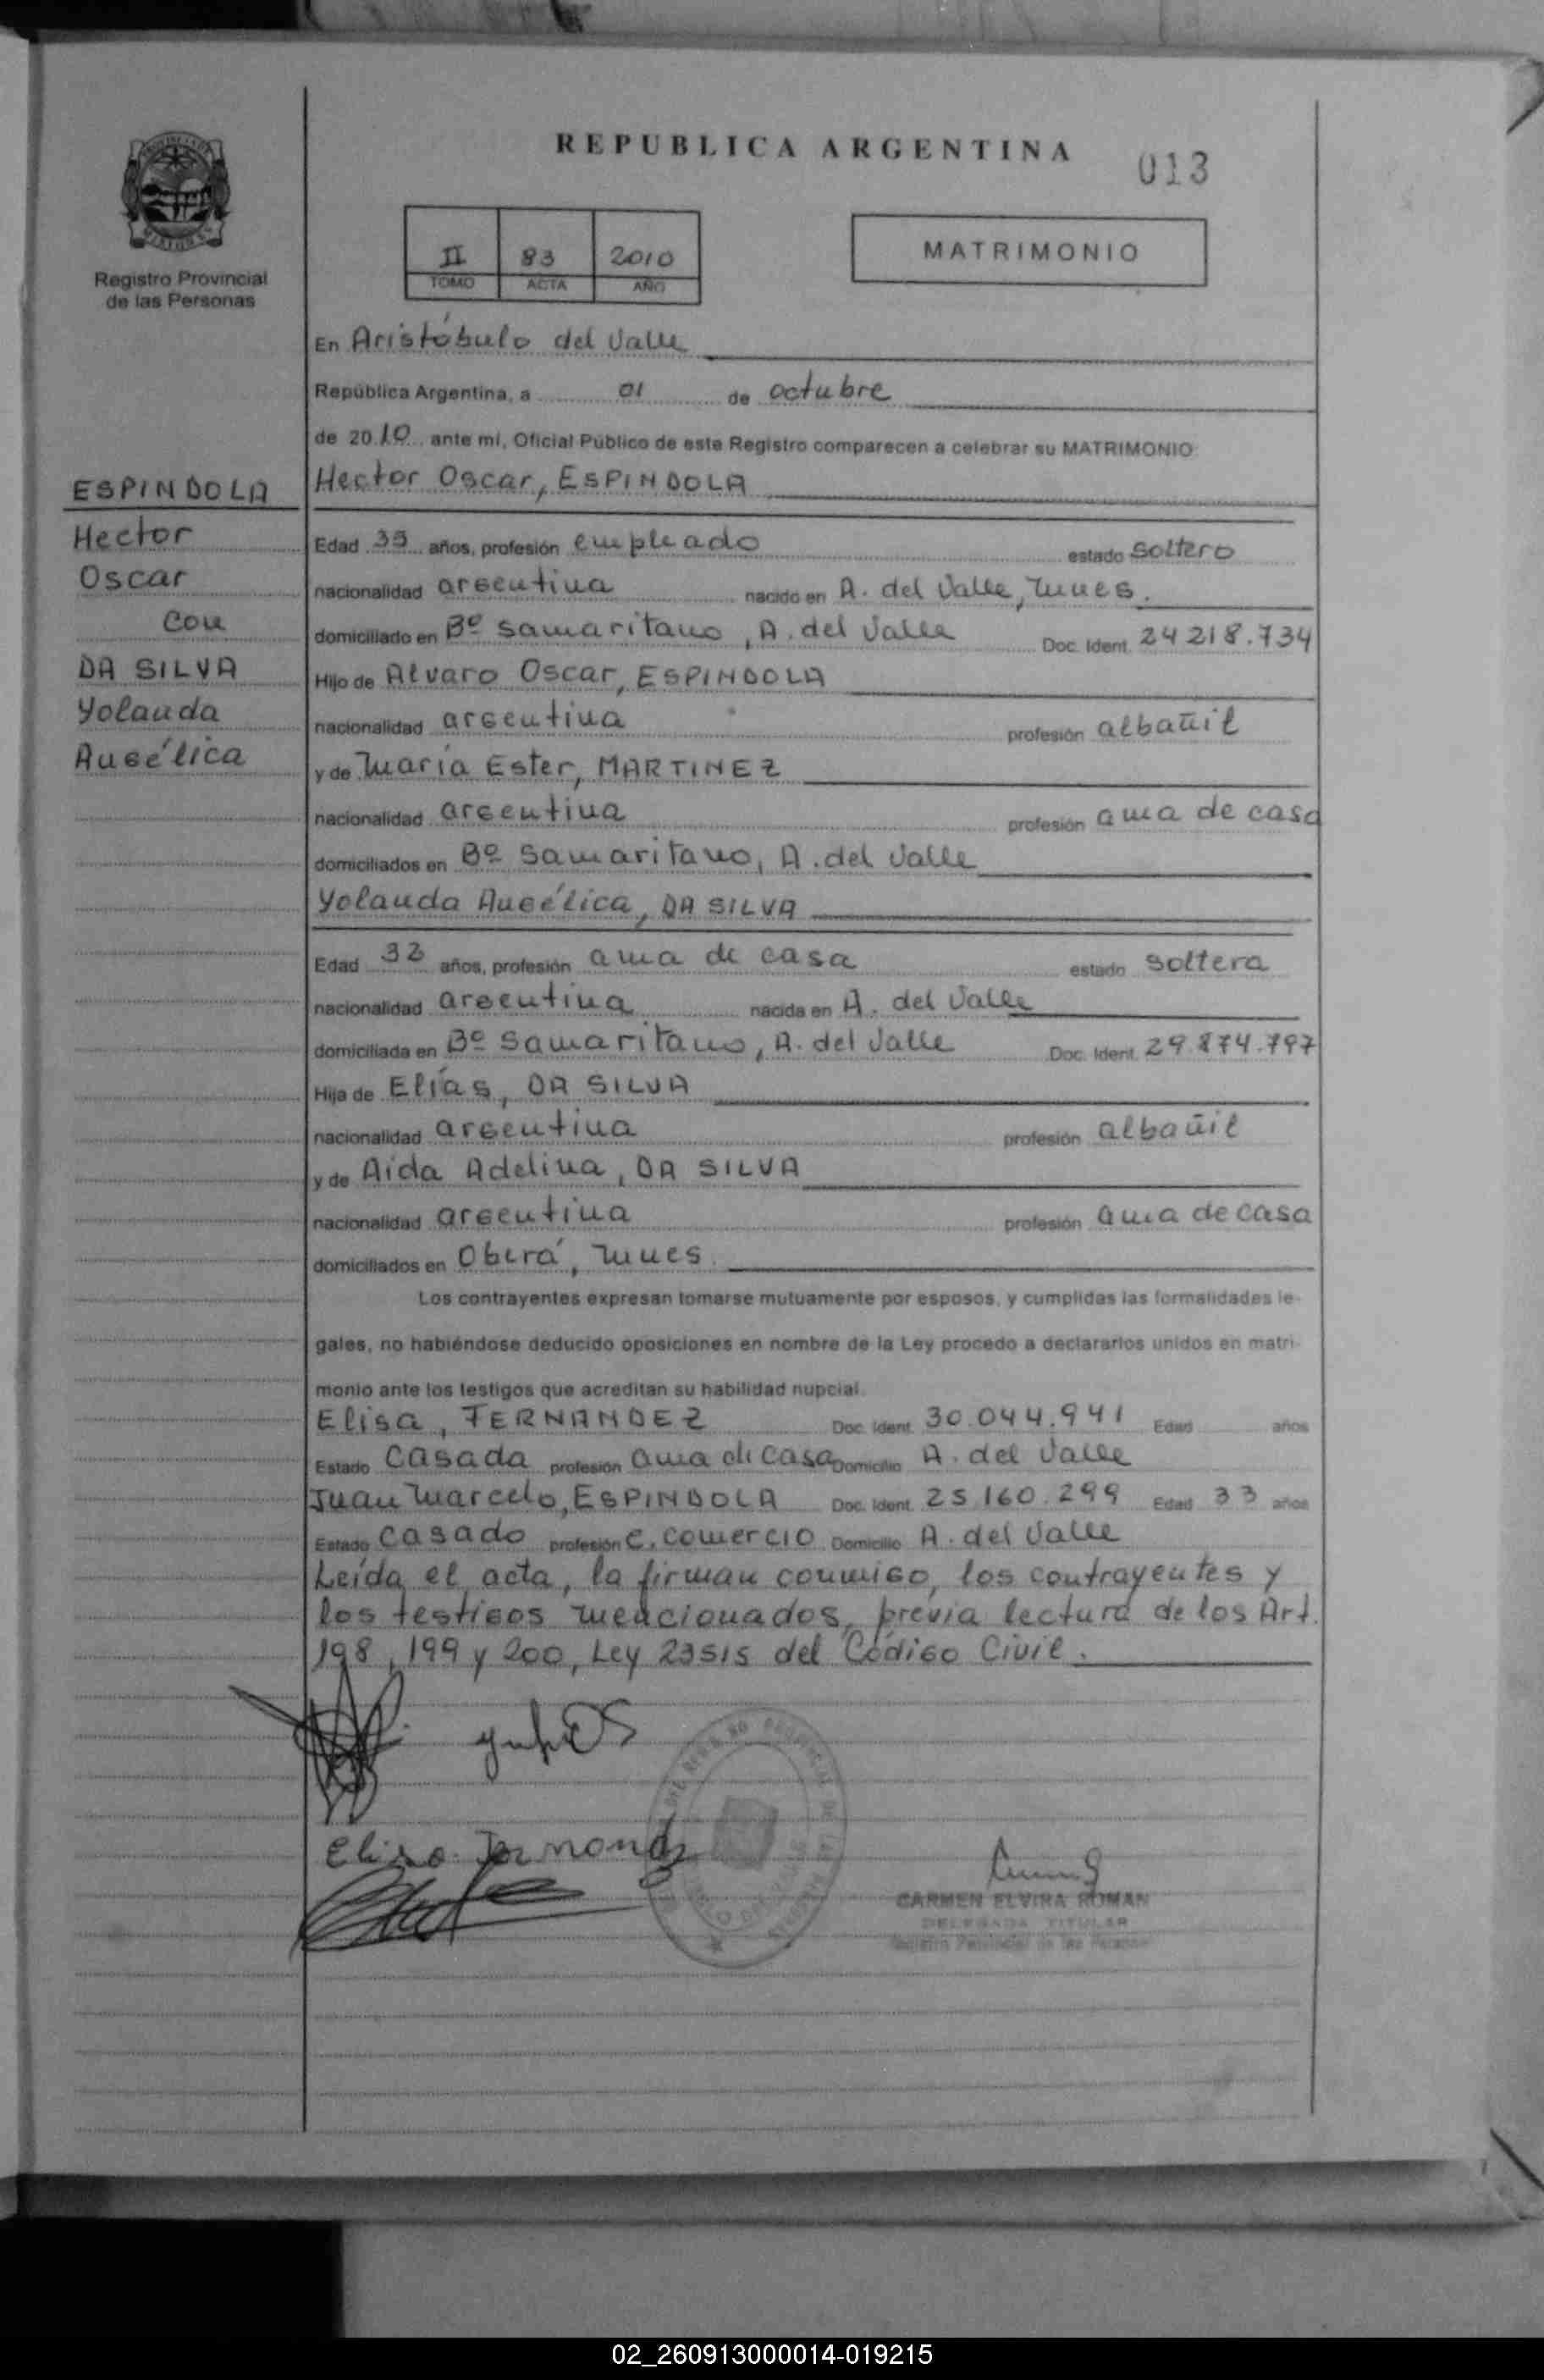 REPUBLICA ARGENTINA
013
II 83 2010
TOMO ACTA AÑO
MATRIMONIO
Registro Provincial
de las Personas
ESPINDOLA
Hector
Oscar
con
DA SILVA
Yolanda
Angélica
En Aristóbulo del Valle
República Argentina, a 01 de octubre
de 2010 ante mí, Oficial Público de este Registro comparecen a celebrar su MATRIMONIO:
Hector Oscar, ESPINDOLA
Edad 35 años, profesión empleado estado soltero
nacionalidad argentina nacido en A. del Valle, Mnes.
domiciliado en Bº Samaritano, A. del Valle Doc. Ident. 24 218.734
Hijo de Alvaro Oscar, ESPINDOLA
nacionalidad argentina profesión albañil
y de María Ester, MARTINEZ
nacionalidad argentina profesión ama de casa
domiciliados en Bº Samaritano, A. del Valle
Yolanda Angélica, DA SILVA
Edad años, profesión ama de casa estado soltera
nacionalidad argentina nacida en A. del Valle
domiciliada en Bº Samaritano, A. del Valle Doc. Ident. 29.874.797
Hija de Elías, DA SILVA
nacionalidad argentina profesión albañil
y de Aida Adelina, DA SILVA
nacionalidad argentina profesión ama de casa
domiciliados en Oberá, Mnes.
Los contrayentes expresan tomarse mutuamente por esposos, y cumplidas las formalidades le-
gales, no habiéndose deducido oposiciones en nombre de la Ley procedo a declararlos unidos en matri-
monio ante los testigos que acreditan su habilidad nupcial.
Elisa, FERNANDEZ Doc. Ident. 30.044.941 Edad años
Estado casada profesión ama de casa Domicilio A. del Valle
Juan Marcelo, ESPINDOLA Doc. Ident. 25.160.299 Edad 33 años
Estado casado profesión e. comercio Domicilio A. del Valle
Leída el acta, la firman conmigo, los contrayentes y
los testigos mencionados, previa lectura de los Art.
198, 199 y 200, Ley 23515 del Código Civil.
Elisa Fernandez
CARMEN ELVIRA ROMAN
DELEGADA TITULAR
Registro Provincial de las Personas
02_260913000014-019215